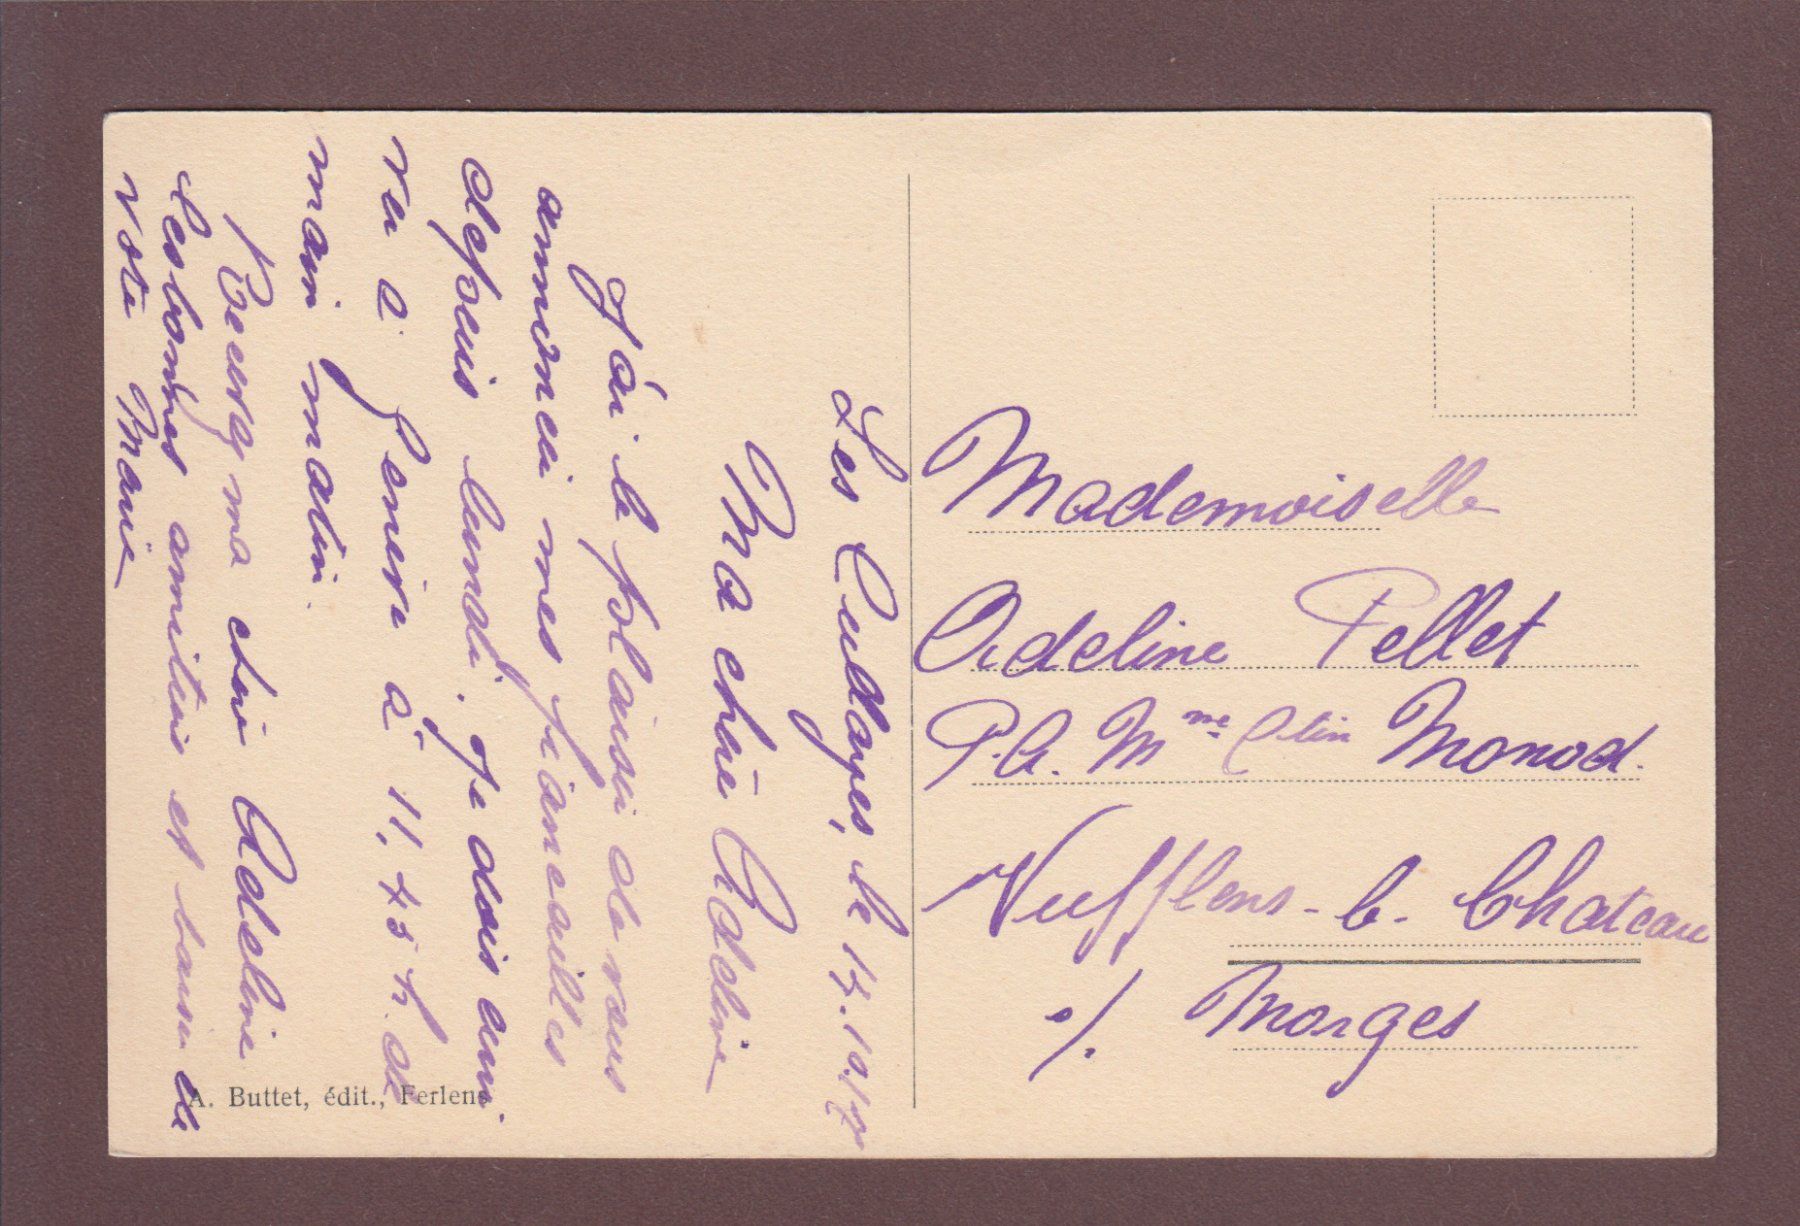 Les Cullayes, le 15.10.17
Ma chère Adeline
J'ai le plaisir de vous
annoncer mes fiancailles
depuis lundi. Je dois enc.
ma matin.
Recevez ma chère Adeline
les bonnes amitiés et baisers de
Votre Marie
Mademoiselle
Adeline Pellet
P.A. Mme Monod.
Vufflens-l. Chateau
s/. Morges
A. Buttet, édit., Ferlens